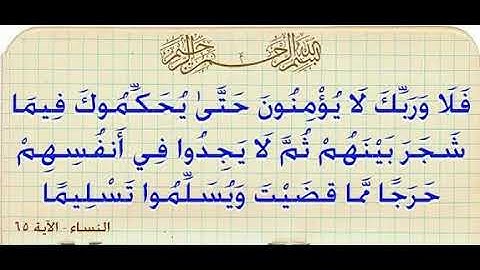 بسم الله الرحمن الرحيم
فَلَا وَرَبِّكَ لَا يُؤْمِنُونَ حَتَّىٰ يُحَكِّمُوكَ فِيمَا
شَجَرَ بَيْنَهُمْ ثُمَّ لَا يَجِدُوا فِي أَنفُسِهِمْ
حَرَجًا مَّمَا قَضَيْتَ وَيُسَلِّمُوا تَسْلِيمًا
النساء - الآية ٦٥